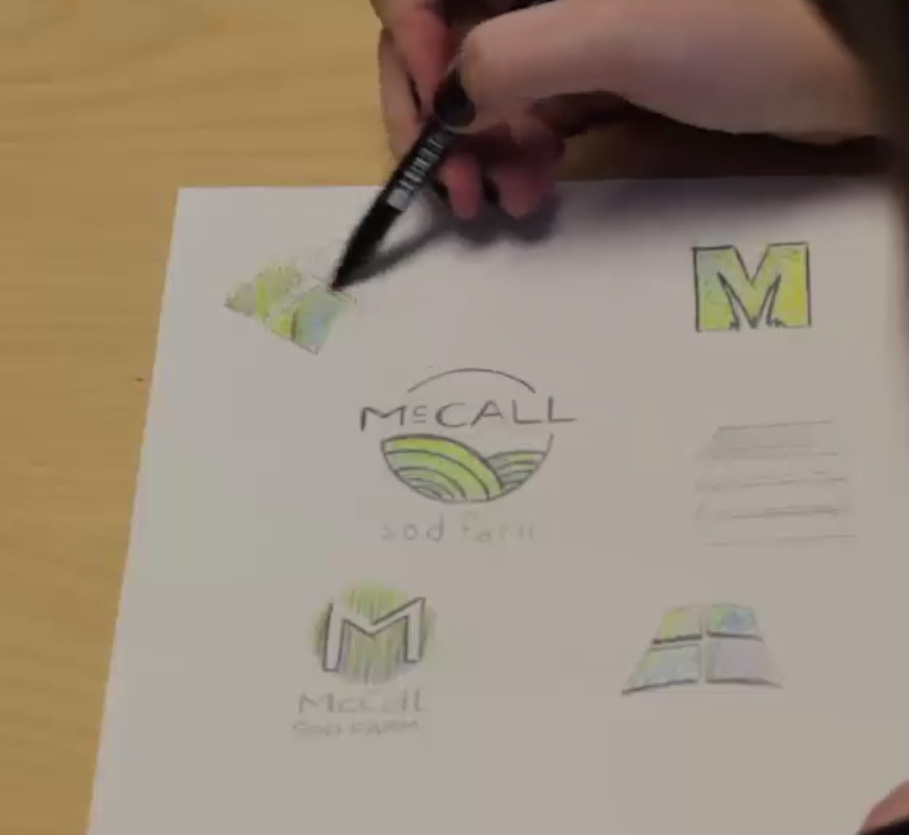 M
McCALL
sod farm
M
McCall
SOD FARM